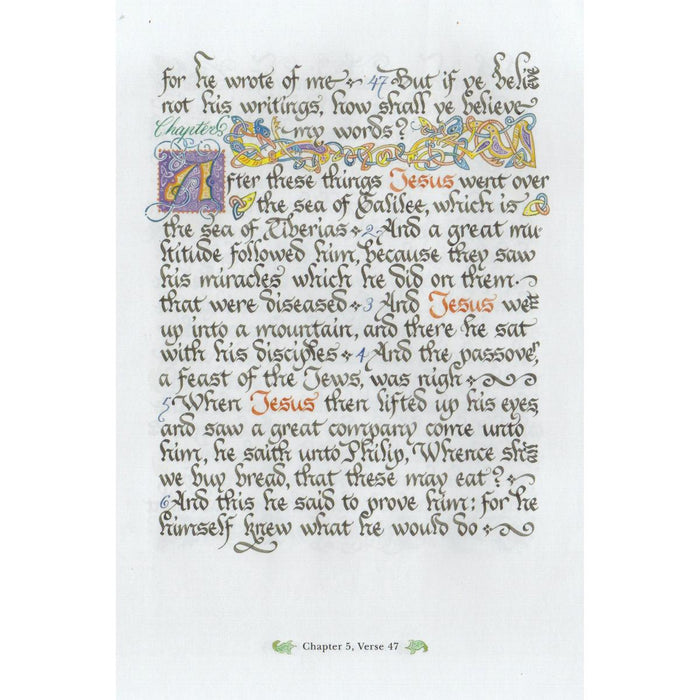 for he wrote of me 47 But if ye believe
not his writings, how shall ye believe
my words?
Chapter 6
After these things Jesus went over
the sea of Galilee, which is
the sea of Tiberias 2 And a great mu-
ltitude followed him, because they saw
his miracles which he did on them
that were diseased 3 And Jesus went
up into a mountain, and there he sat
with his disciples 4 And the passover,
a feast of the Jews, was nigh
5 When Jesus then lifted up his eyes,
and saw a great company come unto
him, he saith unto Philip, Whence shall
we buy bread, that these may eat?
6 And this he said to prove him: for he
himself knew what he would do
Chapter 5, Verse 47